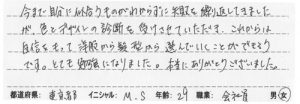 今まで自分に似合うものがわからずに失敗を繰り返してきました
が、色とデザインの診断を受けさせていただき、これからは
自信をもって、洋服から髪型まで選んでいくことができそう
です。とても勉強になりました。本当にありがとうございました。
都道府県: 東京都 イニシャル: M.S 年齢: 29 職業: 会社員 男・女